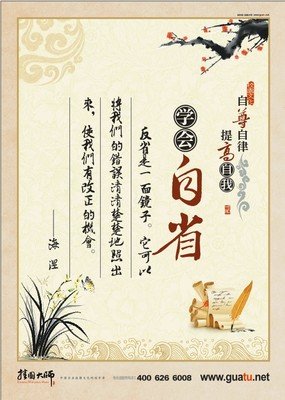 自尊自律
提高自我
学会
自省
反省是一面鏡子。它可以
將我們的錯誤清清楚楚地照出
來，使我們有改正的機會。
——海涅
挂图大师
400 626 6008
www.guatu.net